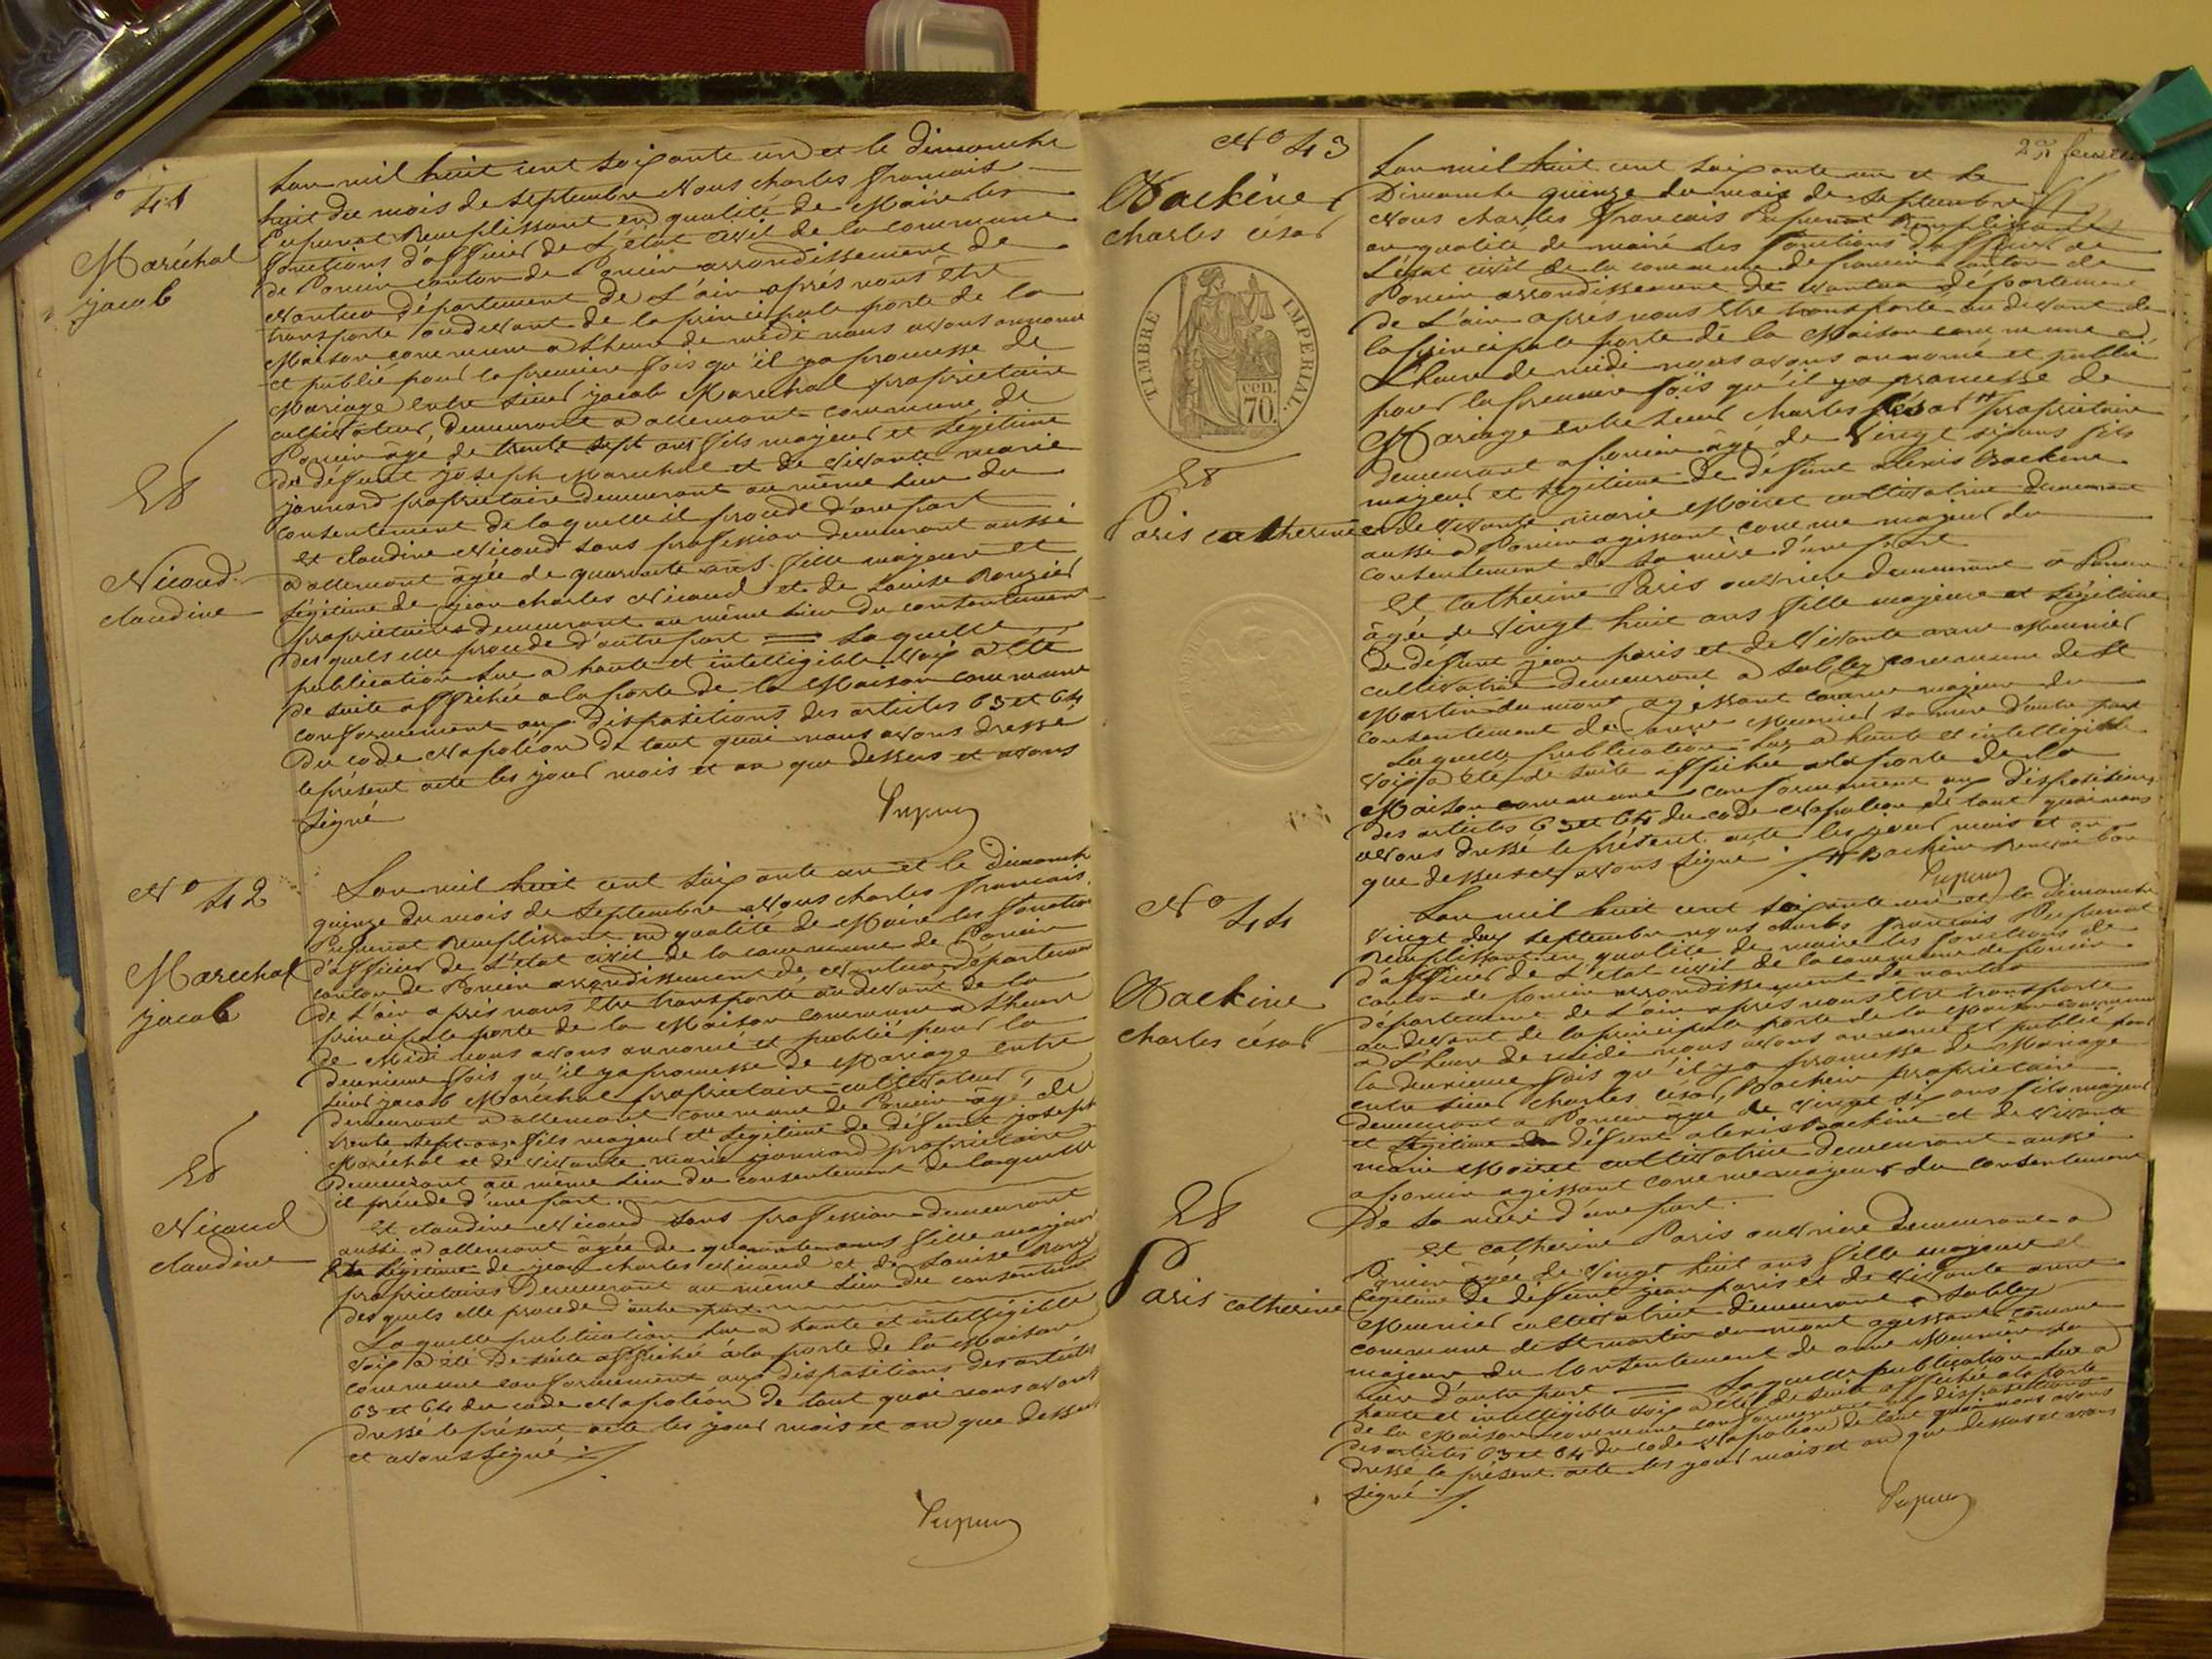 N° 41
Maréchal
jacob
Et
Nicoud
claudine
L'an mil huit cent soixante un et le dimanche
huit du mois de septembre Nous charles francois
Pupunat Remplissant en qualité de Maire les
fonctions d'officier de L'état civil de la commune
de Poncin canton de Poncin arrondissement de
Nantua département de L'ain après nous être
transporté audevant de la principale porte de la
Maison commune a L'heure de midi nous avons annoncé
et publié pour la premiere fois qu'il ya promesse de
Mariage entre sieur jacob Maréchal proprietaire
cultivateur, demeurant a allement commune de
Poncin âgé de trente sept ans fils majeur et légitime
de défunt joseph Marechal et de vivante marie
jannard proprietaire demeurant au même lieu du
consentement de laquelle il procede d'une part
et claudine Nicoud sans profession demeurant aussi
a allement âgée de quarante ans fille majeure et
légitime de jean charles Nicoud et de Louise
proprietaires demeurant au même lieu du consentement
des quels elle procede d'autre part = Laquelle
publication lue a haute et intelligible voix a été
de suite affichée a la porte de la Maison commune
conformement aux dispositions des articles 63 et 64
du code Napoléon de tout quoi nous avons dressé
le présent acte les jour mois et an que dessus et avons
signé
N° 42
Maréchal
jacob
Et
Nicoud
claudine
L'an mil huit cent soixante un et le Dimanche
quinze du mois de septembre Nous charles francois
Pupunat Remplissant en qualité de Maire les fonctions
d'officier de L'état civil de la commune de Poncin
canton de Poncin arrondissement de Nantua département
de L'ain après nous être transporté audevant de la
principale porte de la Maison commune a L'heure
de Midi nous avons annoncé et publié pour la
deuxieme fois qu'il ya promesse de Mariage entre
sieur jacob Maréchal proprietaire cultivateur,
demeurant a allement commune de Poncin âgé de
trente sept ans fils majeur et légitime de défunt joseph
Maréchal et de vivante marie jannard proprietaire
demeurant au même lieu du consentement de laquelle
il procede d'une part.
et claudine Nicoud sans profession demeurant
aussi a allement âgée de quarante ans fille majeure
et légitime de jean charles Nicoud et de Louise
proprietaires Demeurant au même lieu du consentement
des quels elle procede d'autre part.
Laquelle publication lue a haute et intelligible
voix a été de suite affichée a la porte de la Maison
commune conformement aux dispositions des articles
63 et 64 du code Napoléon de tout quoi nous avons
dressé le présent acte les jour mois et an que dessus
et avons signé
N° 43
Backine
charles césar
TIMBRE IMPERIAL.
cen.
70.
Et
Paris catherine
feuillet
L'an mil huit cent soixante un et le
Dimanche quinze du mois de septembre
Nous charles francois Pupunat Remplissant
en qualité de maire les fonctions d'officier de
L'état civil de la commune de poncin canton de
Poncin arrondissement de Nantua département
de L'ain après nous être transporté au devant de
la principale porte de la Maison commune a
L'heure de midi nous avons annoncé et publié
pour la premiere fois qu'il ya promesse de
Mariage entre sieur charles césar # proprietaire
demeurant a poncin âgé de vingt six ans fils
majeur et légitime de défunt alexis Backine
et de vivante marie Moiret cultivatrice demeurant
aussi a Poncin agissant comme majeur du
consentement de sa mère d'une part
Et Catherine Paris ouvriere demeurant a Poncin
âgée de vingt huit ans fille majeure et légitime
de défunt jean paris et de vivante anne Meunier
cultivatrice demeurant a Salley commune de St
Martin du mont agissant comme majeure du
consentement de anne Meunier sa mere d'autre part
Laquelle publication lue a haute et intelligible
voix a été de suite affichée a la porte de la
Maison commune conformement aux dispositions
des articles 63 et 64 du code Napoleon de tout quoi nous
avons dressé le présent acte les jour mois et an
que dessus et avons signé # Backine Renvoi bon
N° 44
Backine
charles césar
Et
Paris catherine
L'an mil huit cent soixante un et le Dimanche
vingt deux septembre nous charles francois Pupunat
remplissant en qualité de maire les fonctions de
d'officier de L'état civil de la commune de poncin
canton de poncin arrondissement de nantua
département de L'ain après nous être transporté
au devant de la principale porte de la Maison commune
a L'heure de midi nous avons annoncé et publié pour
la deuxieme fois qu'il ya promesse de Mariage
entre sieur charles césar, Backine proprietaire
demeurant a Poncin âgé de vingt six ans fils majeur
et légitime de défunt alexis Backine et de vivante
marie Moiret cultivatrice demeurant aussi
a poncin agissant comme majeur du consentement
De sa mère d'une part.
Et catherine Paris ouvriere demeurant a
Poncin âgée de vingt huit ans fille majeure et
légitime de défunt jean paris et de vivante anne
Meunier cultivatrice demeurant a Salley
commune de St martin du mont agissant comme
majeure du consentement de anne Meunier sa
mere d'autre part = Laquelle publication lue a
haute et intelligible voix a été de suite affichée a la porte
de la Maison commune conformement aux dispositions
des articles 63 et 64 du code Napoleon de tout quoi nous avons
dressé le présent acte les jour mois et an que dessus et avons
signé